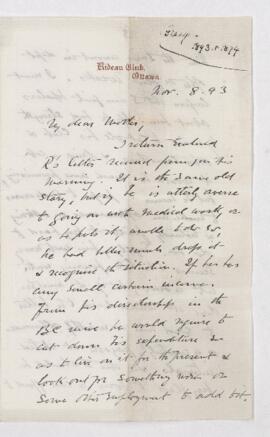 Rideau Club,
Ottawa.
Nov. 8. 93
My dear Mother,
I return enclosed
R's letter received from you this
morning. It is the same old
story, but if he is utterly averse
to going on with medical work, or
as he puts it, unable to do so,
he had better much drop it
& recognise the situation. If he has
any small certain income
from his directorship in the
BC mine he would require to
cut down his expenditure so
as to live on it for the present &
look out for something more or
some other employment to add to it.